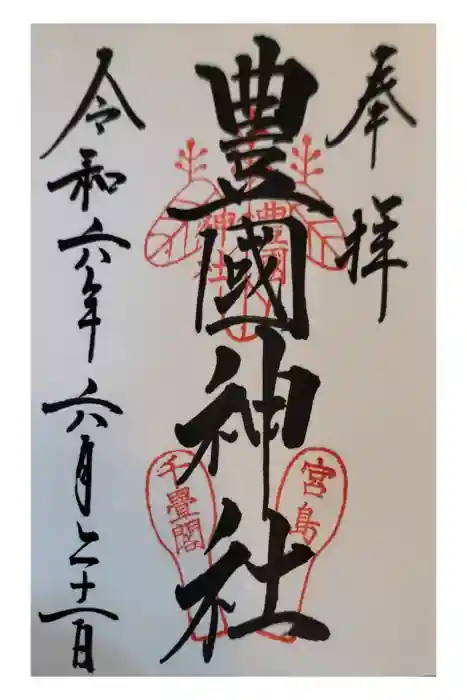 奉拝
豊國神社
豊國
神社
宮島
千疊閣
令和六年六月二十一日